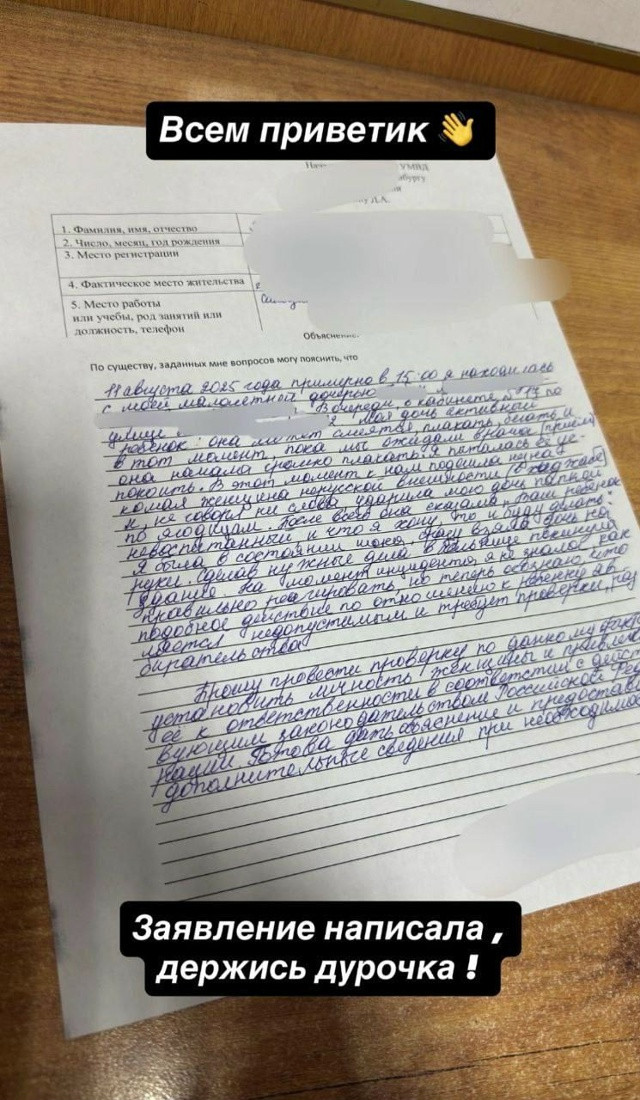 Всем приветик 👋
УМВД
Д.А.
1. Фамилия, имя, отчество
2. Число, месяц, год рождения
3. Место регистрации
4. Фактическое место жительства
5. Место работы
или учебы, род занятий или
должность, телефон
Объяснение.
По существу, заданных мне вопросов могу пояснить, что
11 августа 2025 года примерно в 15:00 я находилась
с моей малолетней дочерью
В очереди к кабинета № 17 по
улице Моя дочь активный
ребенок: она может смеяться, плакать, бегать и
в тот момент, пока мы ожидали врача (приём)
она начала громко плакать. Я пыталась её ус-
покоить. В этот момент к нам подошла незна-
комая женщина нерусской внешности (в хиджабе)
и, не говоря ни слова, ударила мою дочь папкой
по ягодицам. После всего она сказала: Вам ребенок
невоспитанный и что я хочу, то и буду делать!
Я была в состоянии шока, сразу взяла дочь на
руки. Сделав нужные дела в больнице покинула
здание. На момент инцидента, я не знала, как
правильно реагировать, но теперь осознаю, что
подобное действие по отношению к ребенку яв
ляется недопустимым и требует проверки, раз
бирательства.
Прошу провести проверку по данному факту
установить личность женщины и привлечь
её к ответственности в соответствии с дейст
вующим законодательством Российской Феде
рации. Готова дать объяснение и предостав
дополнительные сведения при необходимо
Заявление написала ,
держись дурочка !